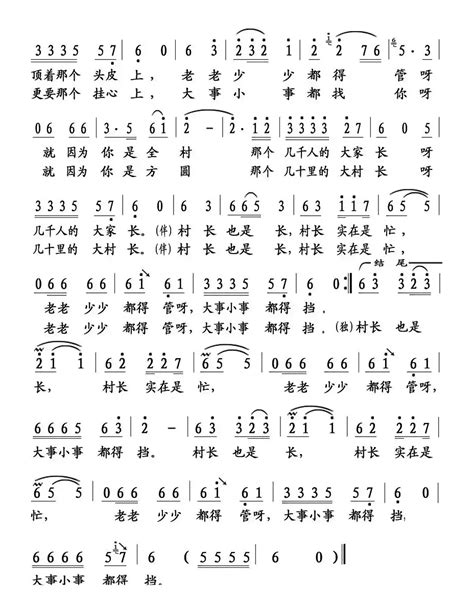 3335 57 | 6 0 | 6 3 | 6 232 1 | 2 2 76 | 5·3 |
顶着那个 头皮 上， 老 老 少 少 都 得 管 呀
更要那个 挂心 上， 大 事 小 事 都 找 你 呀
06 66 | 3·5 61 | 2 - | 2·12 | 3333 2327 | 6 0 |
就 因为 你 是 全 村 那 个 几千人的 大家 长 呀
就 因为 你 是 方 圆 那 个 几十里的 大村 长 呀
3335 57 | 6 0 | 6 3 | 6 6665 | 6 63 | 117 | 65 5 |
几千人的 大家 长。(伴) 村 长 也是 长， 村长 实在是 忙，
几十里的 大村 长。(伴) 村 长 也是 长， 村长 实在是 忙，
结 尾
066 66 | 61 61 | 3335 57 | 6 0 :| 63 323 |
老老 少少 都得 管呀，大事小事 都得 挡。
老老 少少 都得 管呀，大事小事 都得 挡。 (独)村长 也是
21 1 | 62 227 | 65 5 | 066 66 | 61 61 |
长， 村长 实在是 忙， 老老 少少 都得 管呀，
6665 63 | 2 - | 63 323 | 21 1 | 62 227 |
大事小事 都得 挡。 村长 也是 长， 村长 实在是
65 5 | 066 66 | 61 61 | 3335 57 | 6 0 |
忙， 老老 少少 都得 管呀，大事小事 都得 挡，
6666 57 | 6 6 | (5555 | 6 0) ‖
大事小事 都得 挡。